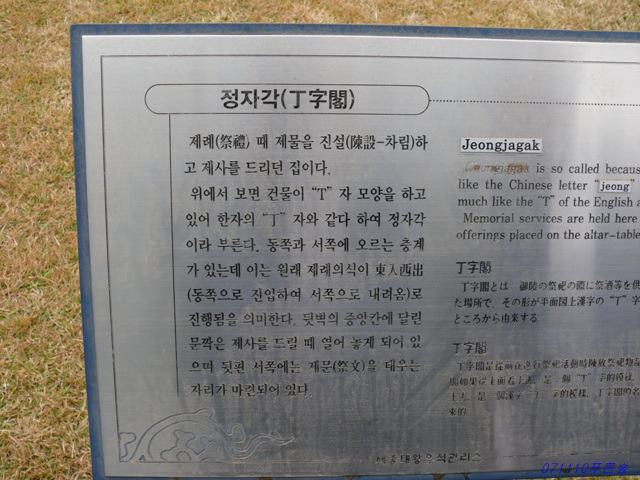 정자각(丁字閣)
제례(祭禮) 때 제물을 진설(陳設-차림)하
고 제사를 드리던 집이다.
위에서 보면 건물이 "T" 자 모양을 하고
있어 한자의 "丁" 자와 같다 하여 정자각
이라 부른다. 동쪽과 서쪽에 오르는 층계
가 있는데 이는 원래 제례의식이 東入西出
(동쪽으로 진입하여 서쪽으로 내려옴)로
진행됨을 의미한다. 뒷벽의 중앙칸에 달린
문짝은 제사를 드릴 때 열어 놓게 되어 있
으며 뒷편 서쪽에는 제문(祭文)을 태우는
자리가 마련되어 있다
Jeongjagak
is so called becaus
like the Chinese letter "jeong"
much like the "T" of the English a
Memorial services are held here
offerings placed on the altar-table
丁字閣
丁字閣とは 御陵の祭祀の際に祭酒等を供
た場所で、その形が平面図上漢字の "丁" 字
ところから由来する
丁字閣
丁字閣是從前在進行祭祀活動時陳放祭祀物品
如果從上面看上去, 是一個 "T" 字的模樣,
上去, 是一個漢字 "丁" 字的模樣, 丁字閣的名
來的
세종대왕유적관리소